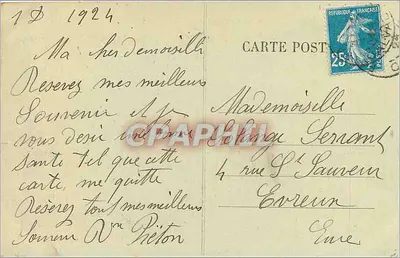 1 D 1924
Ma cher demoiselle
Resevez mes meilleurs
Souvenir et je
vous desir une bone
Sante tel que cette
carte, me quitte
Resèrez tous mes meilleurs
Souvenir Rne Piéton
CARTE POST
REPUBLIQUE FRANÇAISE
25
Mademoiselle
Solange Serrant
4 rue St Sauveur
Evreux
Eure
CPAPHIL